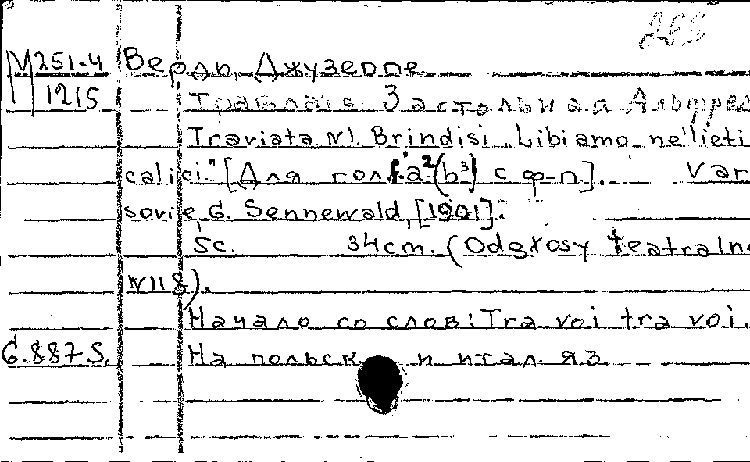 263
М251-4 Верди, Джузеппе
1215 Травиата Застольная Альфред
Traviata N1. Brindisi „Libiamo ne'lieti
calici." [Для гол. (a²(h³) с ф-п]. Var
sovie, G. Sennewald, [1901].
5c. 34cm. (Odgłosy teatraln
N118).
Начало со слов: Tra voi tra voi.
G.887 S. На польск и итал яз